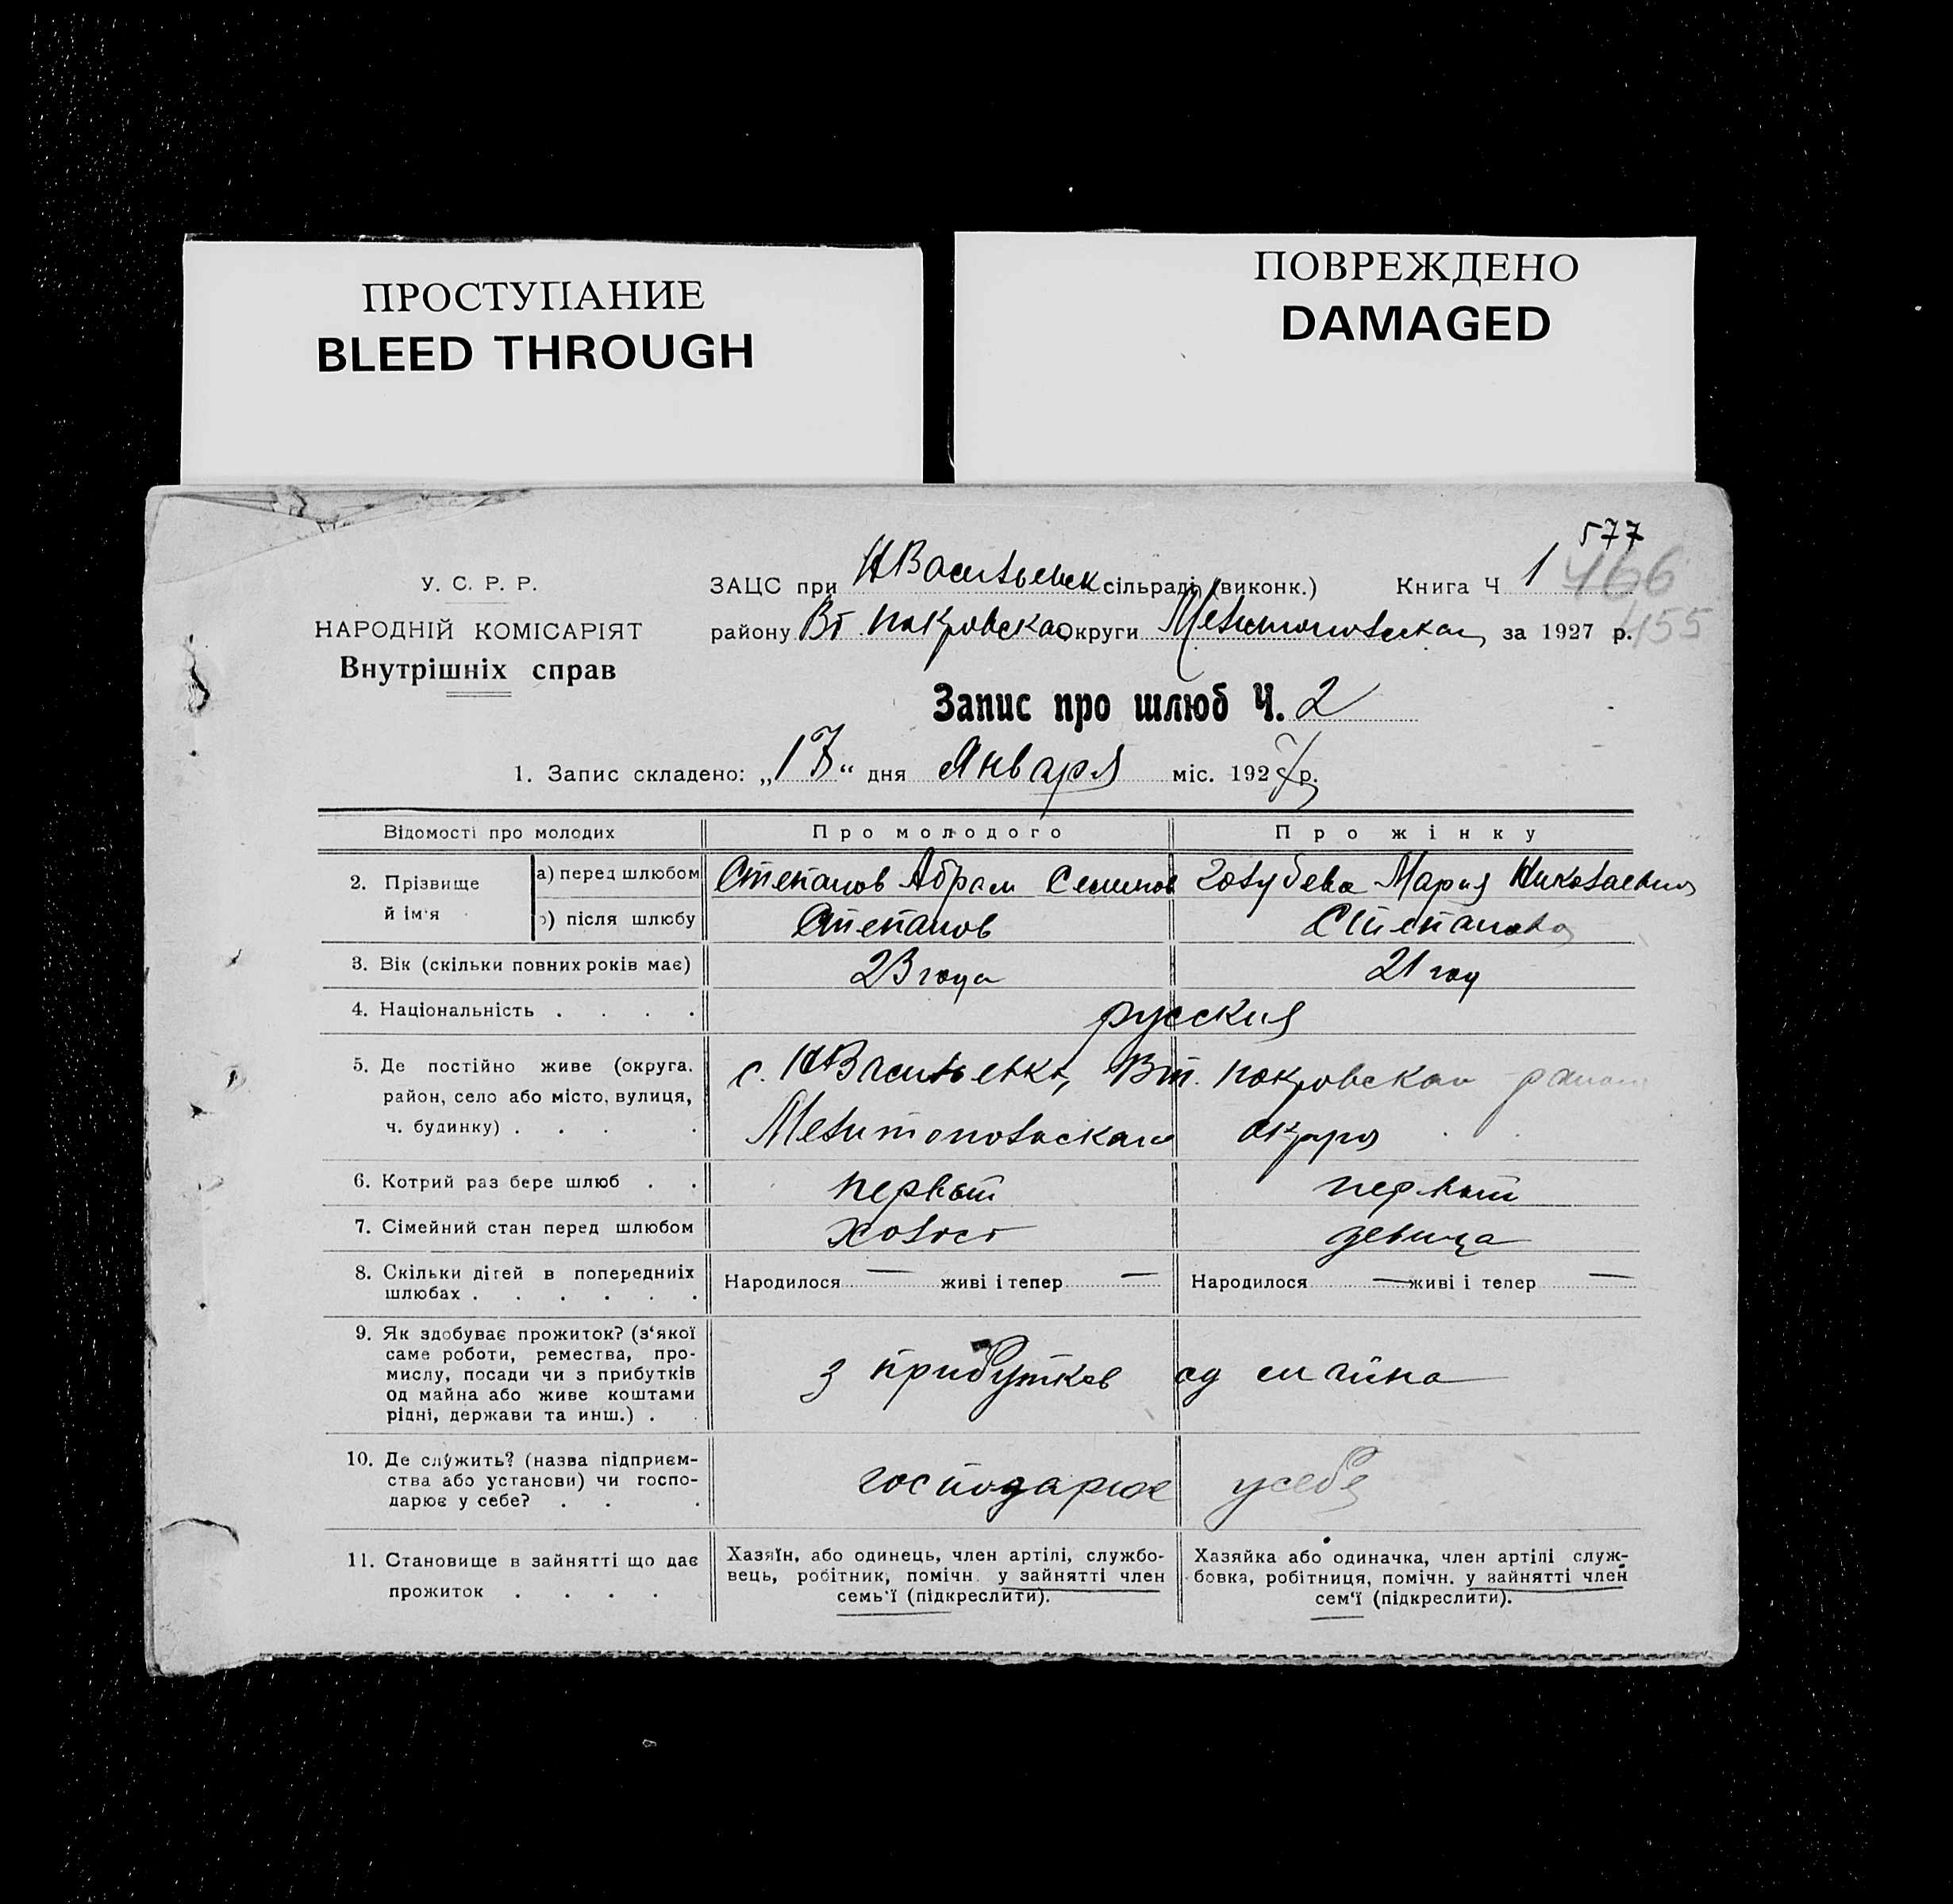 ПРОСТУПАНИЕ
BLEED THROUGH
ПОВРЕЖДЕНО
DAMAGED
577
466
455
У. С. Р. Р.
НАРОДНІЙ КОМІСАРІЯТ
Внутрішніх справ
ЗАЦС при НВасильевск сільраді (виконк.) Книга Ч 1
району Вт. Покровска округи Мелитопольская за 1927 р.
Запис про шлюб Ч. 2
1. Запис складено: „17“ дня Января міс. 1927 р.
Відомості про молодих Про молодого Про жінку
2. Прізвище й ім'я
а) перед шлюбом Степанов Абрам Семенов Голубева Мария Николаевна
б) після шлюбу Степанов Степанова
3. Вік (скільки повних років має) 23 года 21 год
4. Національність . . . . русския
5. Де постійно живе (округа. с. НВасильевка, Вт. Покровскаго района
район, село або місто, вулиця,
ч. будинку) . . . . Мелитопольскаго округа
6. Котрий раз бере шлюб . . первый первый
7. Сімейний стан перед шлюбом холост девица
8. Скільки дітей в попередниіх Народилося — живі і тепер — Народилося — живі і тепер —
шлюбах . . . . . .
9. Як здобуває прожиток? (з‘якої
саме роботи, ремества, про-
мислу, посади чи з прибутків з прибутков од майна
од майна або живе коштами
рідні, держави та инш.) .
10. Де служить? (назва підприєм-
ства або установи) чи госпо- господарює у себе
дарює у себе? . . .
11. Становище в зайнятті що дає
прожиток . . . .
Хазяїн, або одинець, член артілі, службо-
вець, робітник, помічн. у зайнятті член
семь‘ї (підкреслити).
Хазяйка або одиначка, член артілі служ-
бовка, робітниця, помічн. у зайнятті член
сем‘ї (підкреслити).